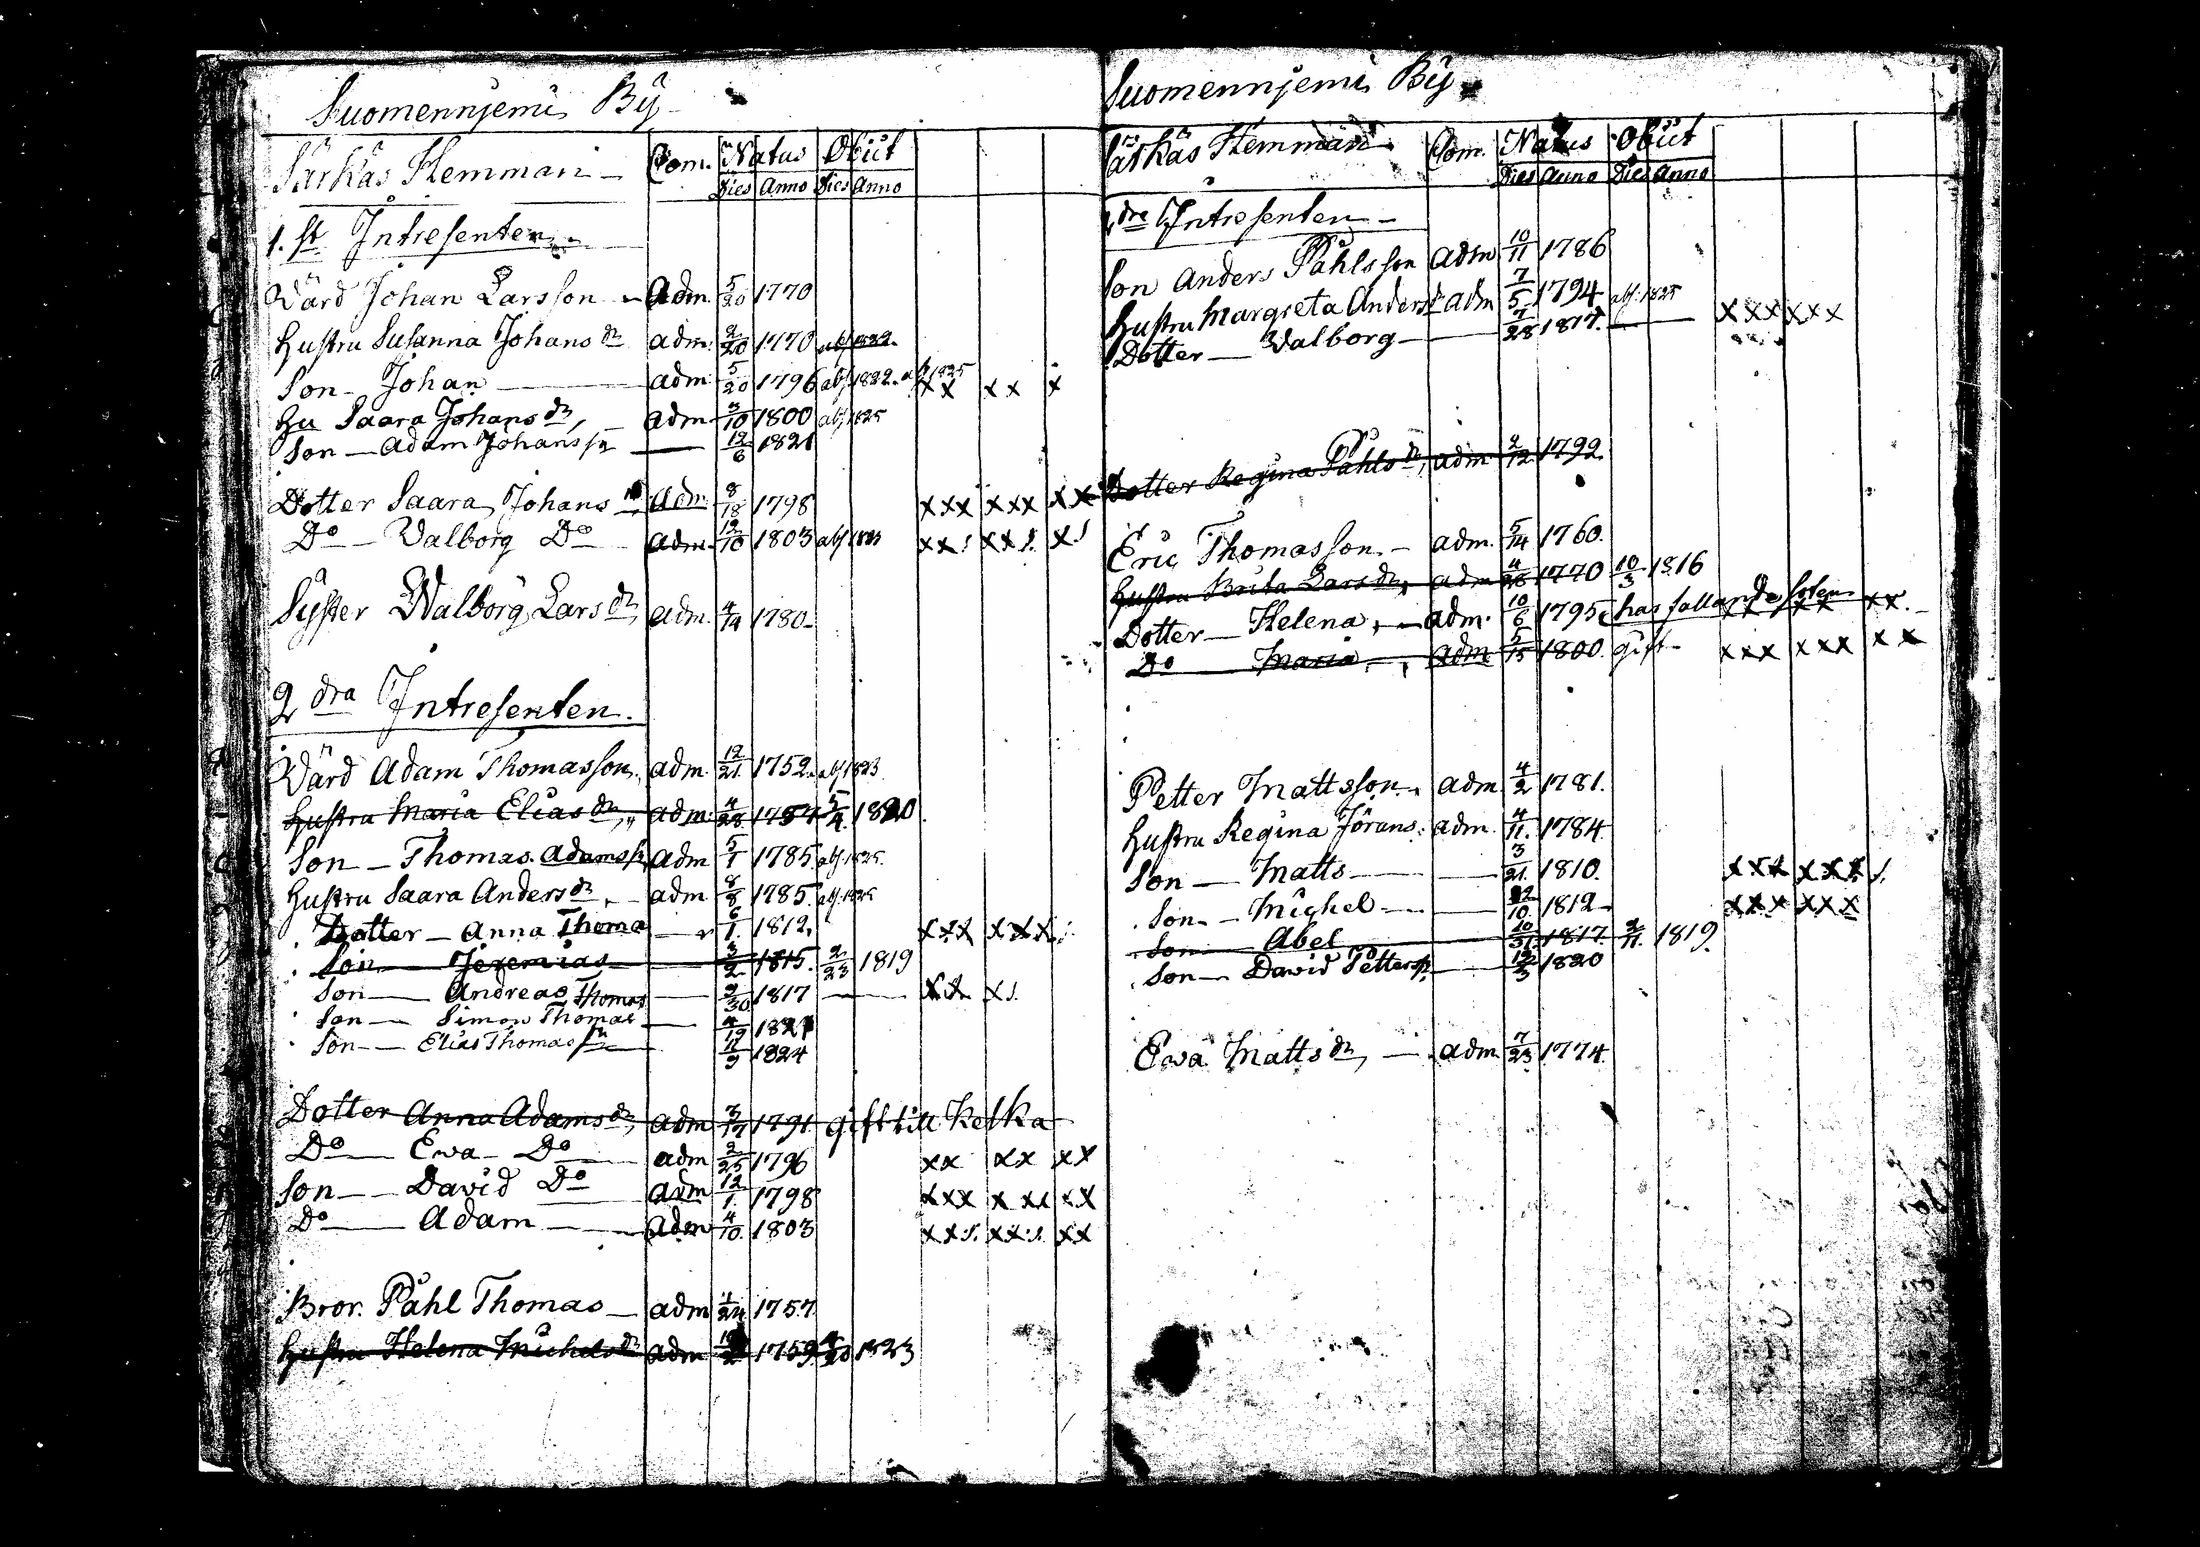 Suomennjemi Bÿ
Särkäs Hemman Com. Natus Obiit
Dies Anno Dies Anno
1. st Intresenten
Värd Johan Larsson adm. 5/20 1770
Hustru Susanna Johans dr adm. 2/20 1770 abs. 1822.
Son Johan adm. 5/20 1796 abs. 1822. 1825 xx xx x
Hu Saara Johans dr adm 1800 abs. 1825
Son Adam Johanss 12/6 1821
Dotter Saara Johans adm. 8/18 1798 xxx xxx xx
Do Valborg Do adm. 12/10 1803 abs
Syster Walborg Lars dr adm. 4/14 1780
2 dra Intresenten.
Värd Adam Thomasson adm. 12/21 1752. abs 1823
Hustru Maria Elias dr adm. 4/28 1757 1820
Son Thomas Adamss adm 5/1 1785. abs. 1825.
Hustru Saara Anders dr adm 8/8 1785. abs. 1825
Dotter Anna Thoma 6/1. 1812. xxx xxx
Son Jeremias 3/2 1815. 2/23 1819
Son Andreas Thomas 9/30 1817 xx x
Son Simon Thomas 4/19 1821
Son Elias Thomas 11/9 1824
Dotter Anna Adams dr adm 1791 gift till Ketka
Do Ewa Do adm 2/25 1796 xx xx xx
Son David Do adm 12/1. 1798 xxx x xx xx
Do Adam adm 4/10. 1803 xx xx xx
Bror. Påhl Thomas adm 1/24 1757
Hustru Helena Michels dr adm 1759 1823
Suomennjemi Bÿ
Särkäs Hemman Com. Natus Obiit
Dies Anno Dies Anno
dra Intresenten
Son Anders Påhlsson adm 10/11 1786
Hustru Margreta Anders dr adm 7/5 1794 abs. 1825
Dotter Valborg 7/28 1817. xxx xxx
Dotter Regina Påhls dr adm 2/12 1792.
Eric Thomasson adm. 5/14 1760.
Hustru Brita Lars dr adm 4/28 1770 10/3 1816
Dotter Helena adm. 10/6 1795 har fallande soten xx xx xx
Do Maria adm 5/15 1800. gift xxx xxx xx
Petter Mattsson adm 4/2 1781.
Hustru Regina Jörans. adm. 4/11. 1784
Son Matts 3/21. 1810. xxx xxx
Son Michel 10. 1812 xxx xxx
Son Abel 10/31. 1817. 2/11. 1819.
Son David Petterss 12/3 1820
Ewa Matts dr adm 7/23 1774